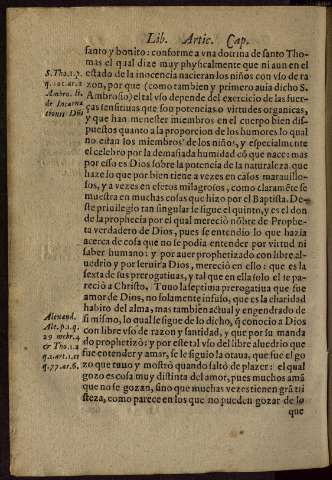 Lib. Artic. Cap.
santo y bonito: conforme a vna doctrina de santo Tho-
mas el qual dize muy physicalmente que ni aun en el
S. Tho. 1. p.
estado de la inocencia nacieran los niños con vso de ra
q. 101. ar. 2
zon, por que (como tambien y primero auia dicho S.
Ambro. li.
Ambrosio) el tal vso depende del exercicio de las fuer-
de Incarna
ças sensitiuas que son potencias o virtudes organicas,
tionis Dñi
y que han menester miembros en el cuerpo bien dis-
puestos quanto a la proporcion de los humores lo qual
no estan los miembros de los niños, y especialmente
el celebro por la demasiada humidad cõ que nace: mas
por esso es Dios sobre la potencia de la naturaleza, que
haze lo que por bien tiene a vezes en casos marauillo-
sos, y a vezes en efetos milagrosos, como claramẽte se
muestra en muchas cosas que hizo por el Baptista. De-
ste priuilegio tan singular se sigue el quinto, y es el don
de la prophecia por el qual mereciò nõbre de Prophe-
ta verdadero de Dios, pues se entendio lo que hazia
acerca de cosa que no se podia entender por virtud ni
saber humano: y por auer prophetizado con libre al-
uedrio y por seruir a Dios, mereciò en ello: que es la
sexta de sus prerogatiuas, y tal que en ella solo el te pa-
reciò a Christo. Tuuo la septima prerogatiua que fue
amor de Dios, no solamente infuso, que es la charidad
habito del alma, mas tambien actual y engendrado de
Alexand.
si mismo, lo qual se sigue de lo dicho, q̃ conocio a Dios
Ale. p. 1. q.
con libre vso de razon y santidad, y que por su manda
29 mebr. 4
do prophetizò: y por este tal vso del libre aluedrio que
& Tho. 1. 2
fue entender y amar, se le siguio la otaua, que fue el go
q. 2. art. 1. et
zo que tuuo y mostrò quando saltò de plazer: el qual
q. 77. ar. 6.
gozo es cosa muy distinta del amor, pues muchos amã
que no se gozan, sino que muchas vezes tienen grã tri
steza, como parece en los que no pueden gozar de lo
que